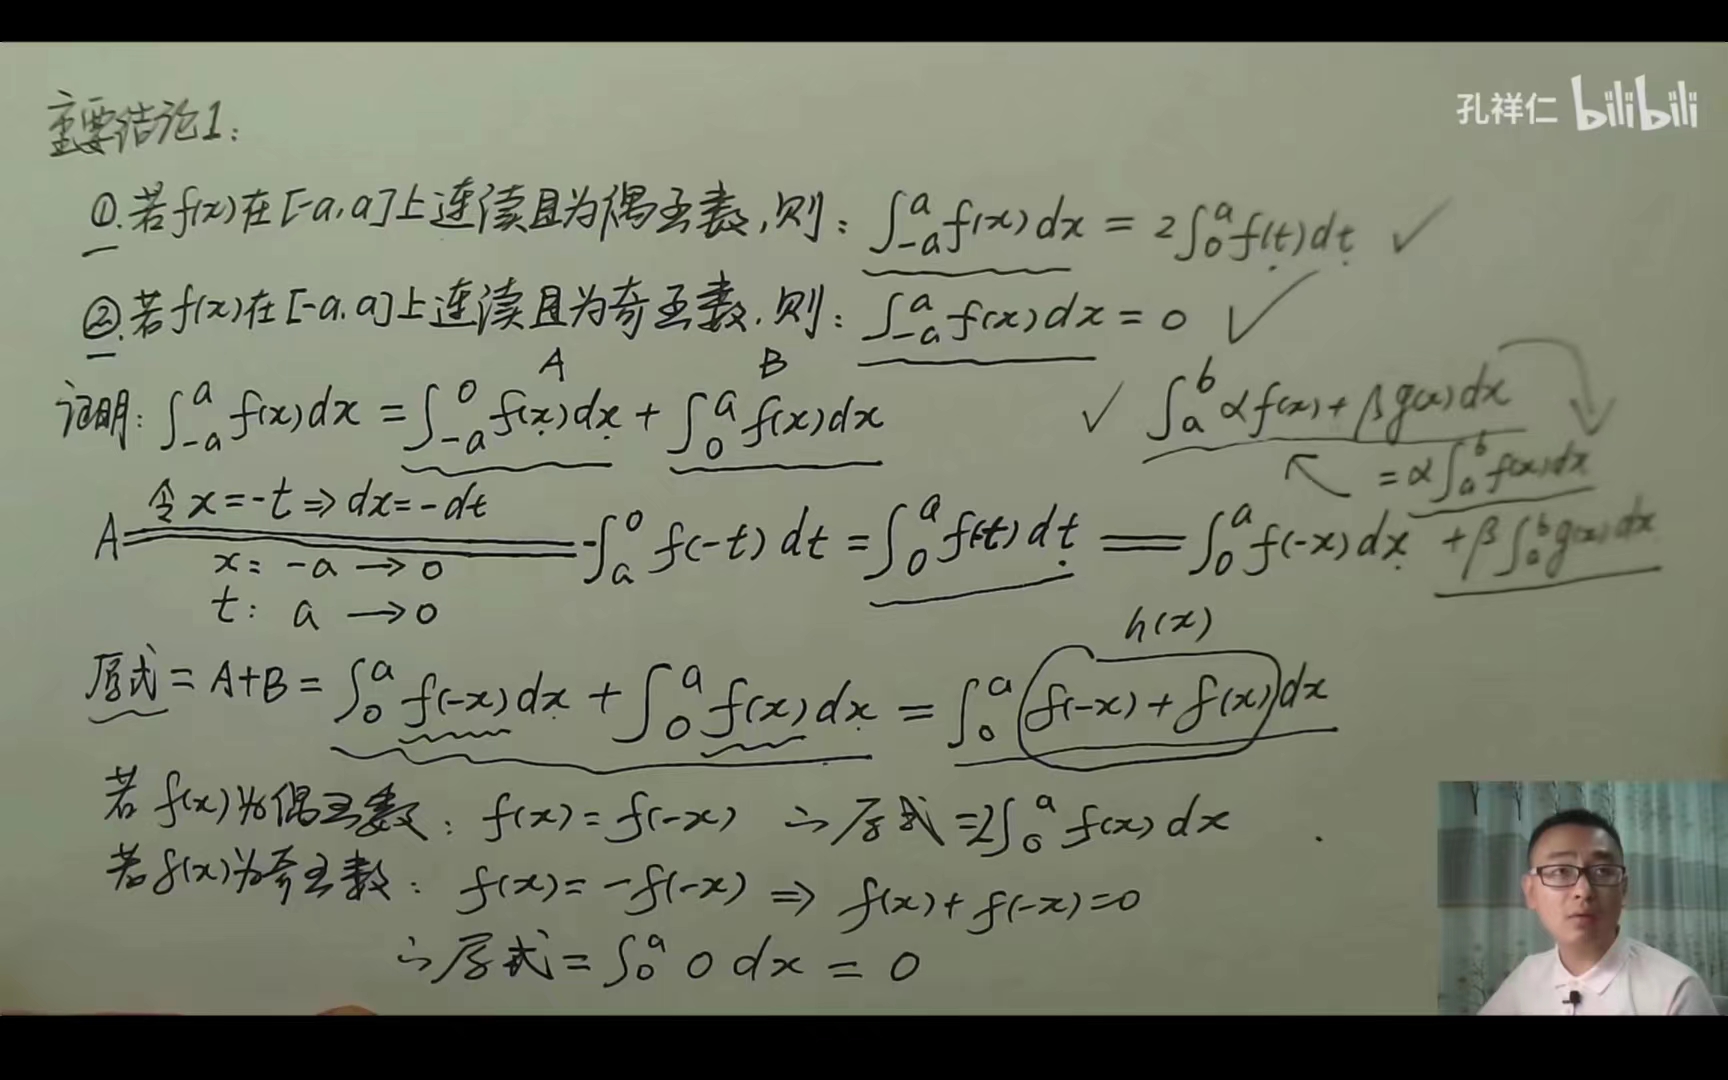 孔祥仁 bilibili
重要结论1:
①.若f(x)在[-a,a]上连续且为偶函数,则: ∫_{-a}^{a} f(x)dx = 2∫_0^a f(t)dt ✓
②.若f(x)在[-a,a]上连续且为奇函数.则: ∫_{-a}^{a} f(x)dx = 0 ✓
A B
证明: ∫_{-a}^{a} f(x)dx = ∫_{-a}^{0} f(x)dx + ∫_0^a f(x)dx
✓ ∫_a^b αf(x)+βg(x)dx
= α∫_a^b f(x)dx
+β∫_a^b g(x)dx
令x=-t⇒dx=-dt
A = -∫_a^0 f(-t)dt = ∫_0^a f(t)dt = ∫_0^a f(-x)dx
x: -a → 0
t: a → 0
h(x)
原式 = A+B = ∫_0^a f(-x)dx + ∫_0^a f(x)dx = ∫_0^a (f(-x)+f(x))dx
若f(x)为偶函数: f(x)=f(-x) ∴原式=2∫_0^a f(x)dx
若f(x)为奇函数: f(x)=-f(-x) ⇒ f(x)+f(-x)=0
∴原式=∫_0^a 0 dx = 0